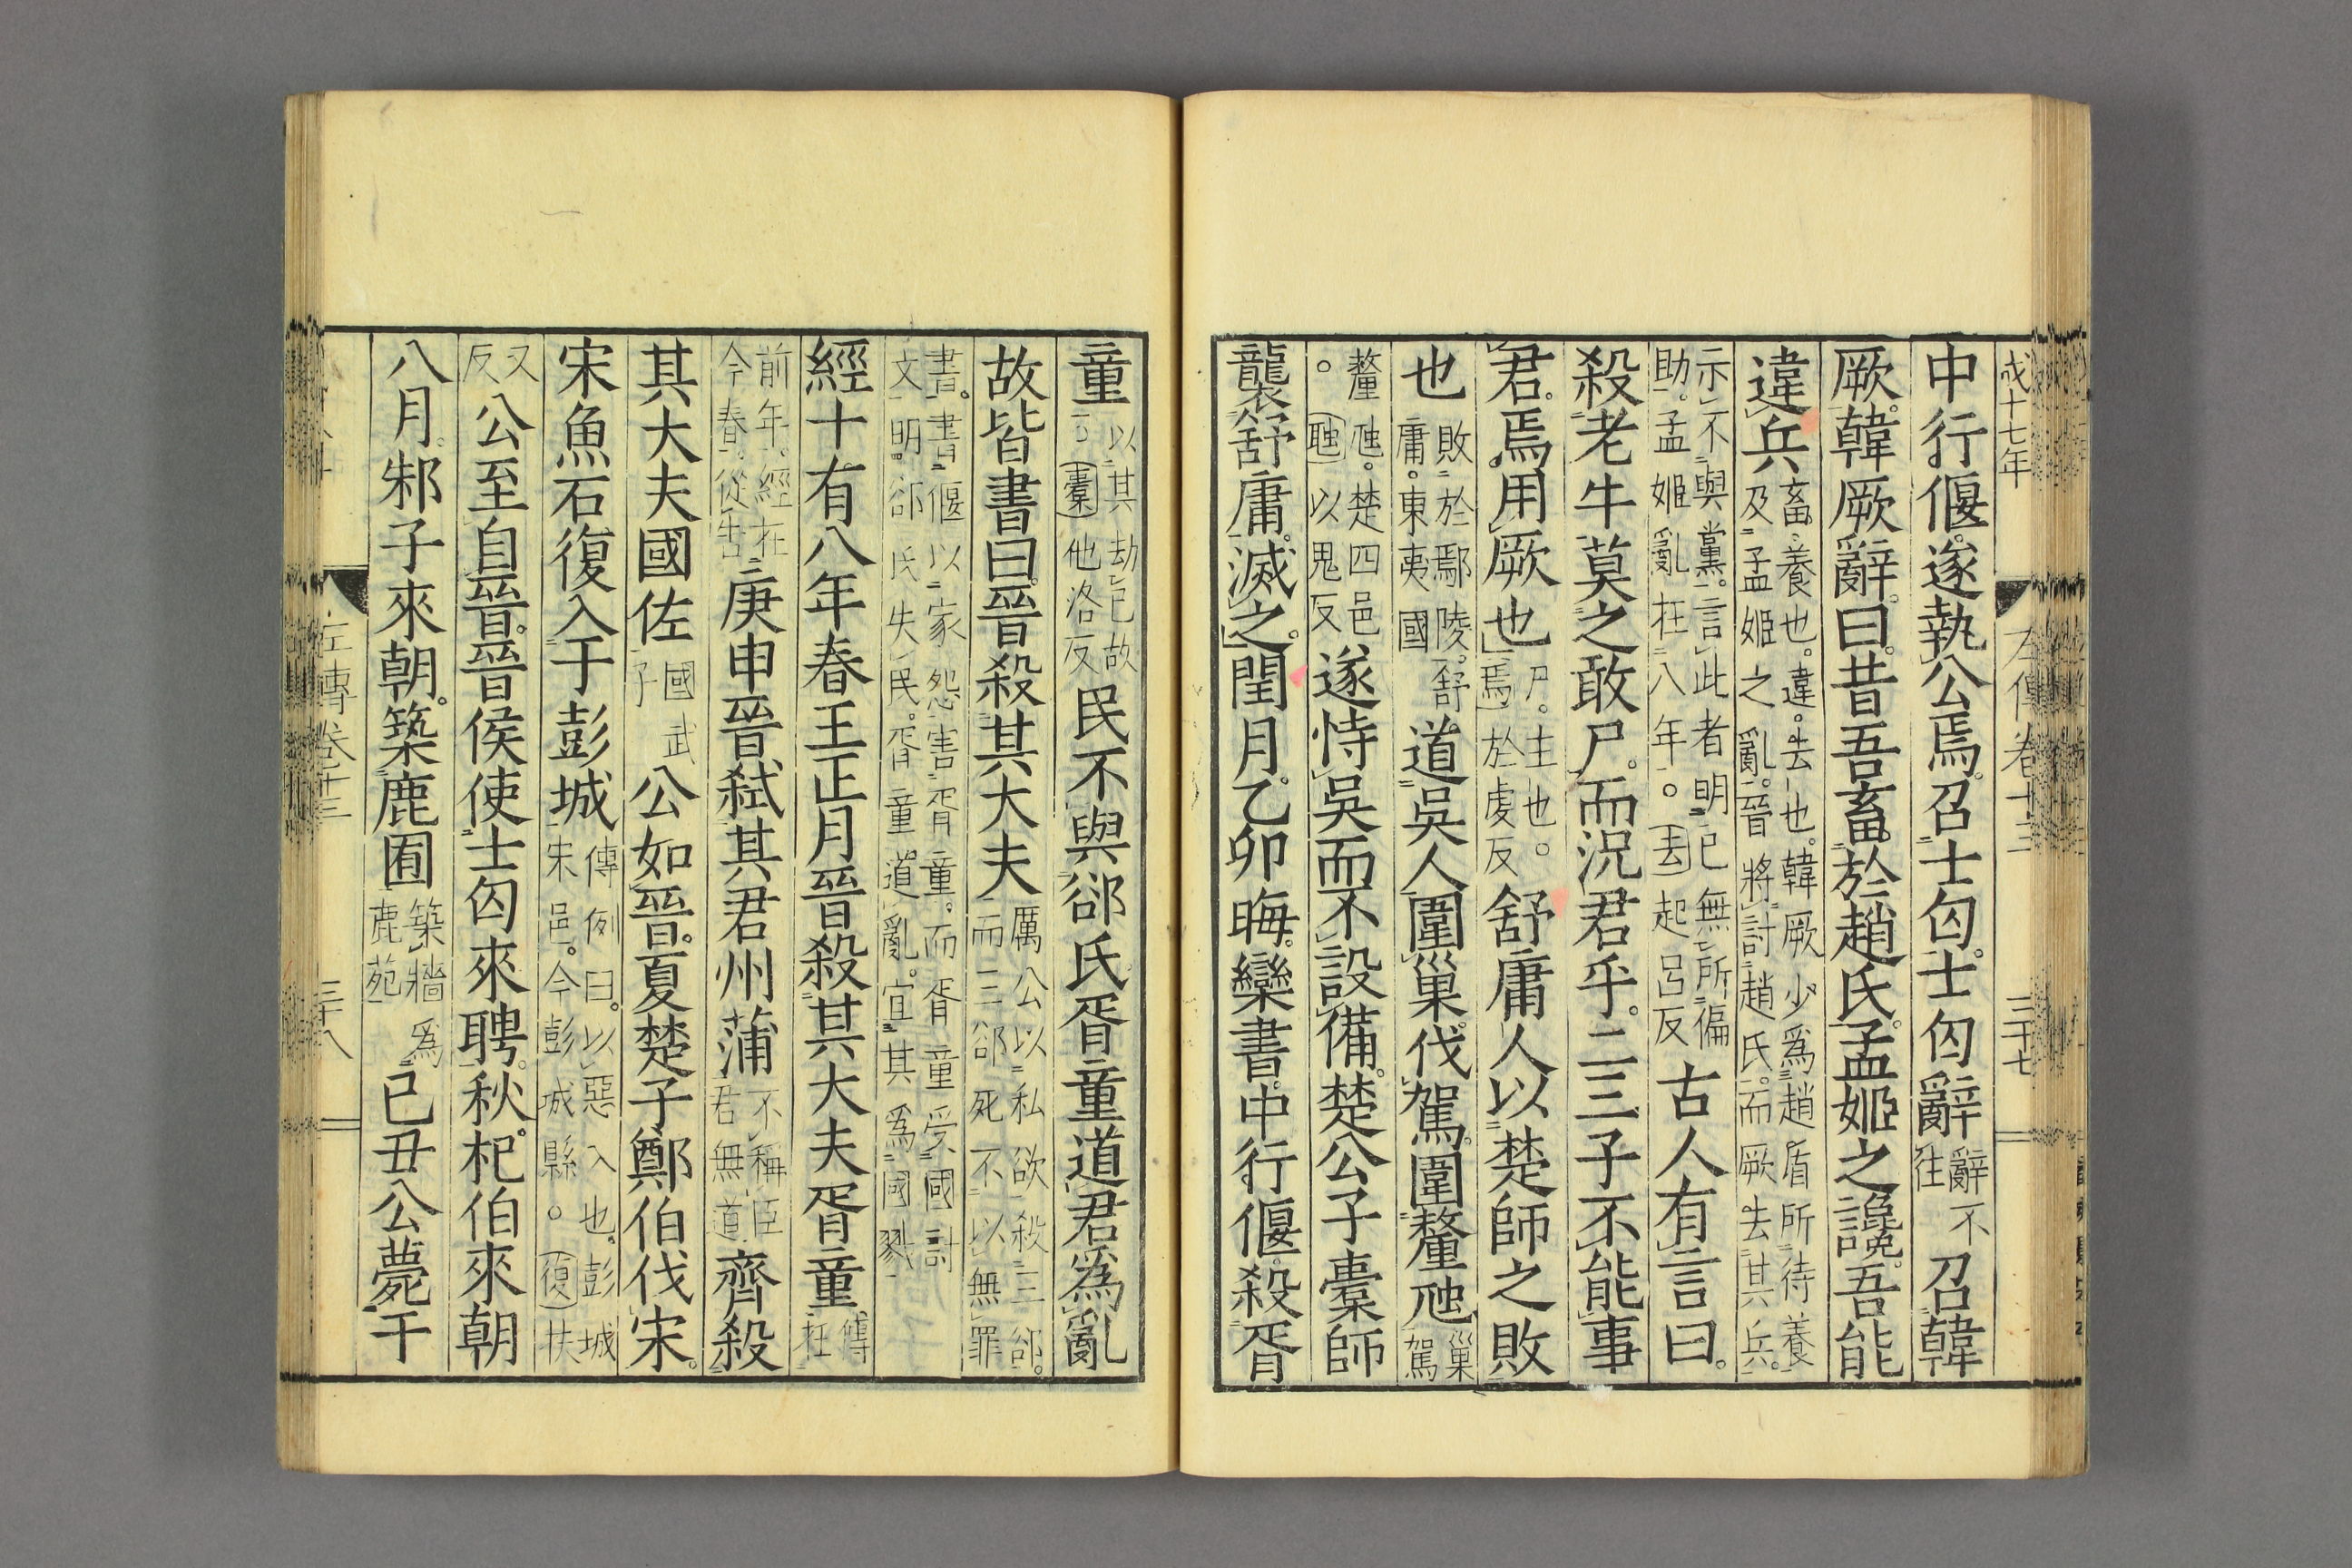 成十七年
左傳卷十三
三十七
中行偃遂執公焉。召士匄。士匄辭辭不往召韓
厥。韓厥辭。曰。昔吾畜於趙氏。孟姬之讒。吾能
違兵畜。養也。違。去也。韓厥少爲趙盾所待養及孟姬之亂。晉將討趙氏。而厥去其兵。
示不與黨。言此者明已無所偏助。孟姬亂在八年。。去起呂反古人有言曰。
殺老牛莫之敢尸。而況君乎。二三子不能事
君。焉用厥也尸。主也。。焉於虔反舒庸人以楚師之敗
也敗於鄢陵。舒庸。東夷國道吳人圍巢。伐駕。圍釐虺巢駕
釐虺。楚四邑。虺以鬼反遂恃吳而不設備。楚公子橐師
襲舒庸。滅之。閏月。乙卯晦。欒書。中行偃。殺胥
童以其劫已故。橐他洛反民不與郤氏。胥童道君爲亂
故皆書曰。晉殺其大夫厲公以私欲殺三郤。而三郤死不以無罪
書。書偃以家怨害胥童。而胥童受國討文明。郤氏失民。胥童道亂。宜其爲國戮
經十有八年春王正月晉殺其大夫胥童傳在
前年。經在今春。從告庚申晉弒其君州蒲不稱臣君無道齊殺
其大夫國佐國武子公如晉。夏楚子鄭伯伐宋。
宋魚石復入于彭城傳例曰。以惡入也。彭城宋邑。今彭城縣。。復扶
又反公至自晉。晉侯使士匄來聘。秋。杞伯來朝
八月。邾子來朝。築鹿囿築牆爲鹿苑己丑公薨于
左傳卷十三
三十八